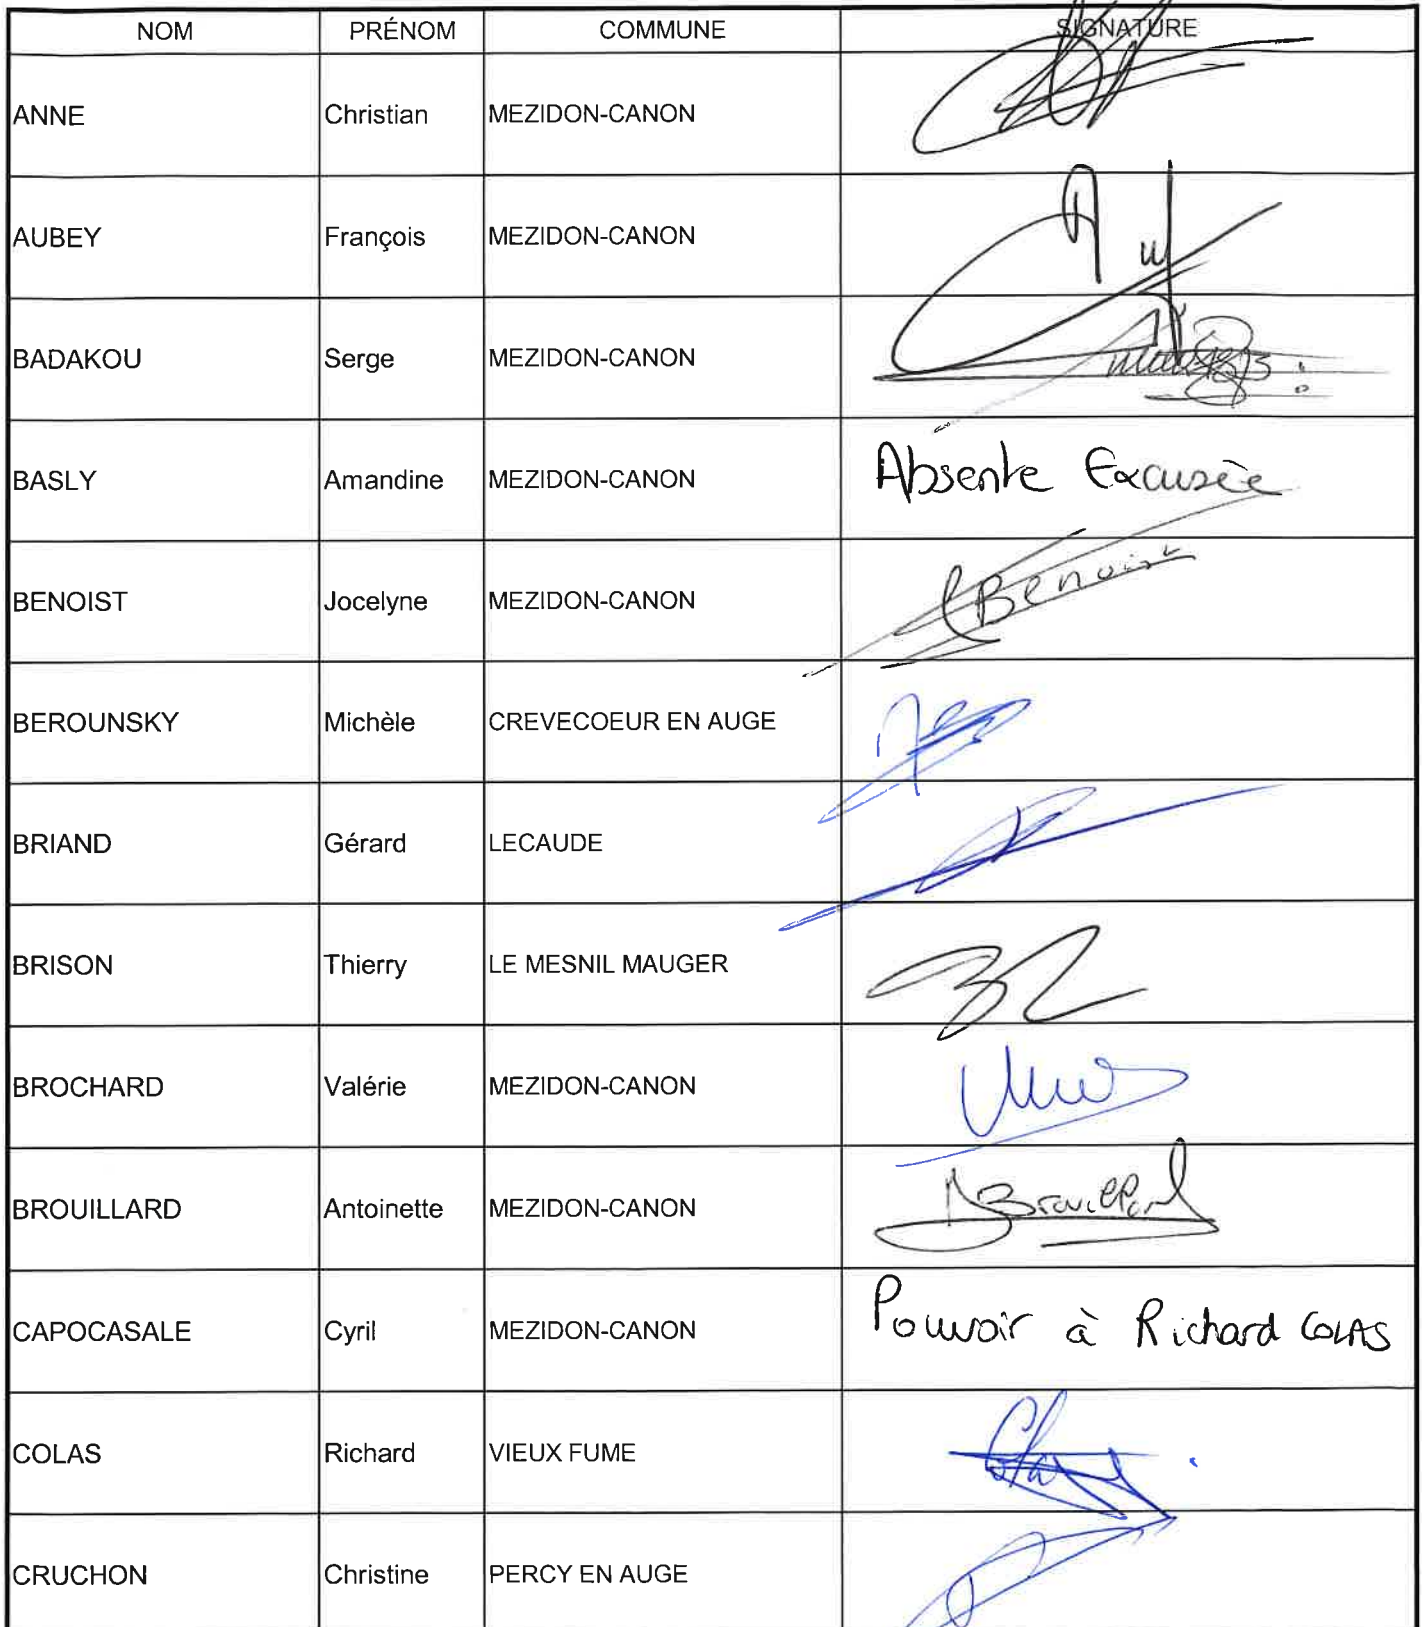 NOM PRÉNOM COMMUNE SIGNATURE
ANNE Christian MEZIDON-CANON
AUBEY François MEZIDON-CANON
BADAKOU Serge MEZIDON-CANON
BASLY Amandine MEZIDON-CANON Absente Excusée
BENOIST Jocelyne MEZIDON-CANON Benoist
BEROUNSKY Michèle CREVECOEUR EN AUGE
BRIAND Gérard LECAUDE
BRISON Thierry LE MESNIL MAUGER
BROCHARD Valérie MEZIDON-CANON
BROUILLARD Antoinette MEZIDON-CANON ABrouillard
CAPOCASALE Cyril MEZIDON-CANON Pouvoir à Richard COLAS
COLAS Richard VIEUX FUME
CRUCHON Christine PERCY EN AUGE